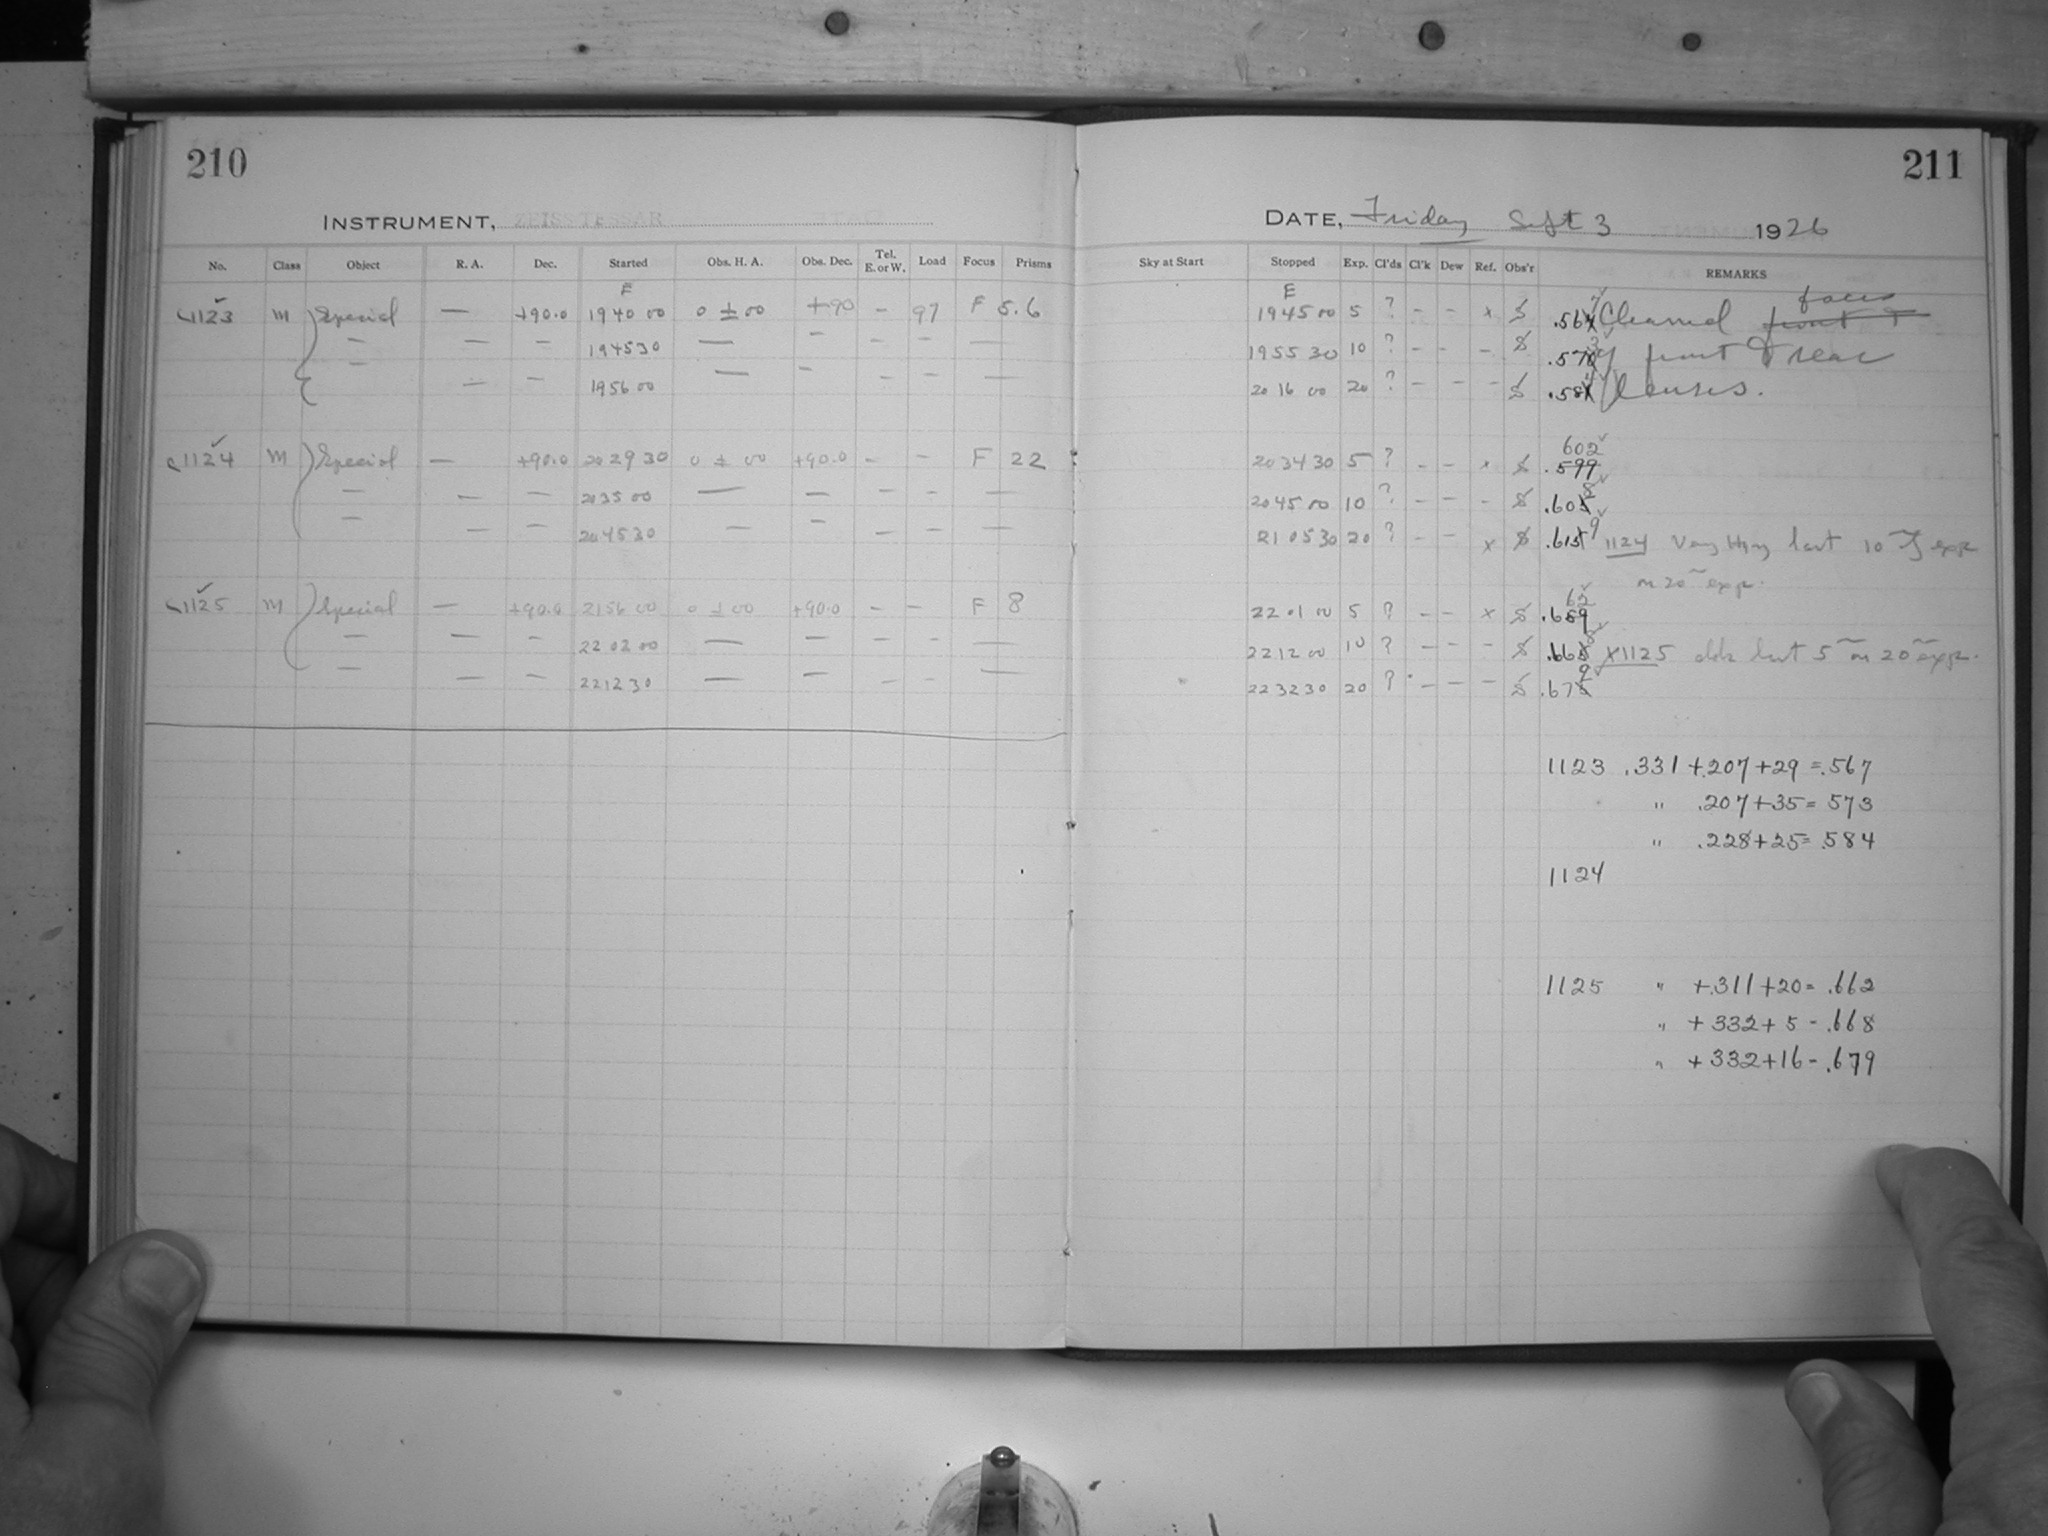 210
INSTRUMENT, ZEISS TESSAR
No. Class Object R. A. Dec. Started Obs. H. A. Obs. Dec. Tel. E. or W. Load Focus Prisms
E
1123 M Special — +90.0 19 40 00 0 ± 00 +90 – 97 F 5.6
— — — 19 45 30 — — – – —
— — — 19 56 00 — — – – —
1124 M Special — +90.0 20 29 30 0 ± 00 +90.0 – – F 22
— — — 20 35 00 — — – – —
— — — 20 45 30 — — – – —
1125 M Special — +90.0 21 56 00 0 ± 00 +90.0 – – F 8
— — — 22 02 00 — — – – —
— — — 22 12 30 — — – – —
211
DATE, Friday Sept 3 1926
Sky at Start Stopped Exp. Cl'ds Cl'k Dew Ref. Obs'r REMARKS
E
19 45 00 5 ? – – x S .567 Cleaned faces front &
19 55 30 10 ? – – – S .573 of front & rear
20 16 00 20 ? – – – S .584 lenses.
602
20 34 30 5 ? – – x S .599
20 45 00 10 ? – – – S .608
21 05 30 20 ? – – x S .619 1124 Very Hzy last 10 m of exp
on 20 m exp.
22 01 00 5 ? – – x S .662
22 12 00 10 ? – – – S .668 x1125 last 5 m on 20 m exp.
22 32 30 20 ? – – – S .679
1123 .331 +.207 + 29 = .567
" .207 + 35 = 573
" .228 + 25 = .584
1124
1125 " +.311 + 20 = .662
" + 332 + 5 - .668
" + 332 + 16 - .679